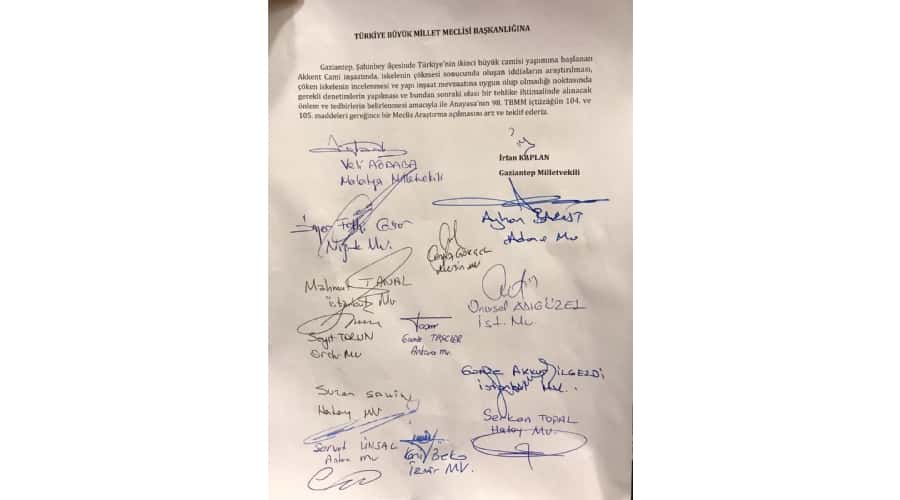 TÜRKİYE BÜYÜK MİLLET MECLİSİ BAŞKANLIĞINA
Gaziantep, Şahinbey ilçesinde Türkiye'nin ikinci büyük camisi yapımına başlanan
Akkent Cami inşaatında, iskelenin çökmesi sonucunda oluşan iddiaların araştırılması,
çöken iskelenin incelenmesi ve yapı inşaat mevzuatına uygun olup olmadığı noktasında
gerekli denetimlerin yapılması ve bundan sonraki olası bir tehlike ihtimalinde alınacak
önlem ve tedbirlerin belirlenmesi amacıyla ile Anayasa'nın 98. TBMM içtüzüğün 104. ve
105. maddeleri gereğince bir Meclis Araştırma açılmasını arz ve teklif ederiz.
İrfan KAPLAN
Gaziantep Milletvekili
Veli AĞBABA
Malatya Milletvekili
Ayhan BARUT
Adana Mv
Niğde Mv.
Cengiz GÖKÇEL
Mersin MV
Mahmut TANAL
İstanbul Mv
Onursal ADIGÜZEL
İst. Mv.
Seyit TORUN
Ordu MV
Gamze TAŞCIER
Ankara mv.
Gamze AKKUŞ İLGEZDİ
İstanbul Mv.
Suzan ŞAHİN
Hatay MV
Serkan TOPAL
Hatay Mv.
Servet ÜNSAL
Ankara mv
Kani Beko
İzmir MV.